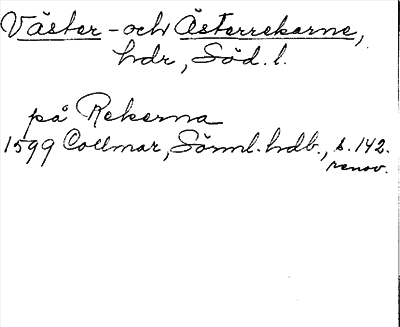 Väster- och Österrekarne,
hdr, Söd. l.
på Rekerna
1599 Collmar, Sörml. hdb., s. 142.
renov.